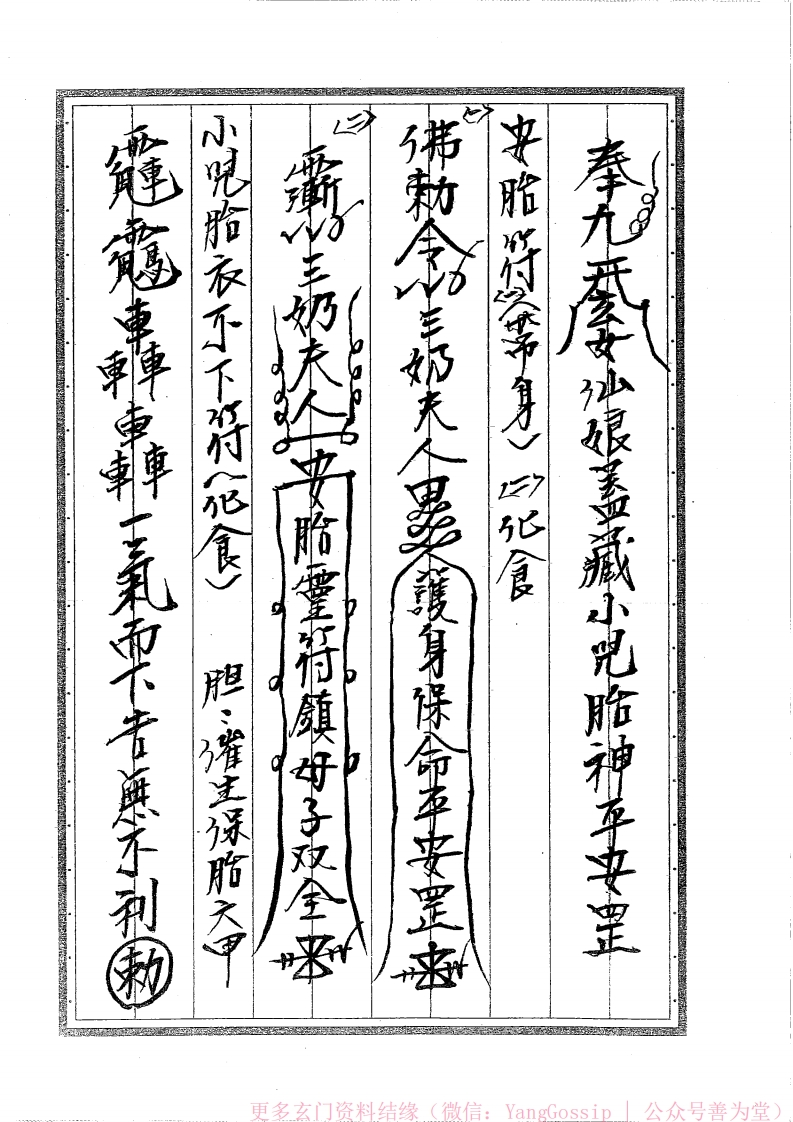 奉九天玄女仙娘蓋藏小児胎神平安罡
安胎符㈠帶身 ㈡化食
㈠
佛勅令三奶夫人 護身保命平安罡
㈡
三奶夫人安胎靈符鎮母子双全
小児胎衣不下符(化食) 胆:催生保胎六甲
車車車車車車一氣而下吉無不利勅
更多玄门资料结缘（微信：YangGossip | 公众号善为堂）